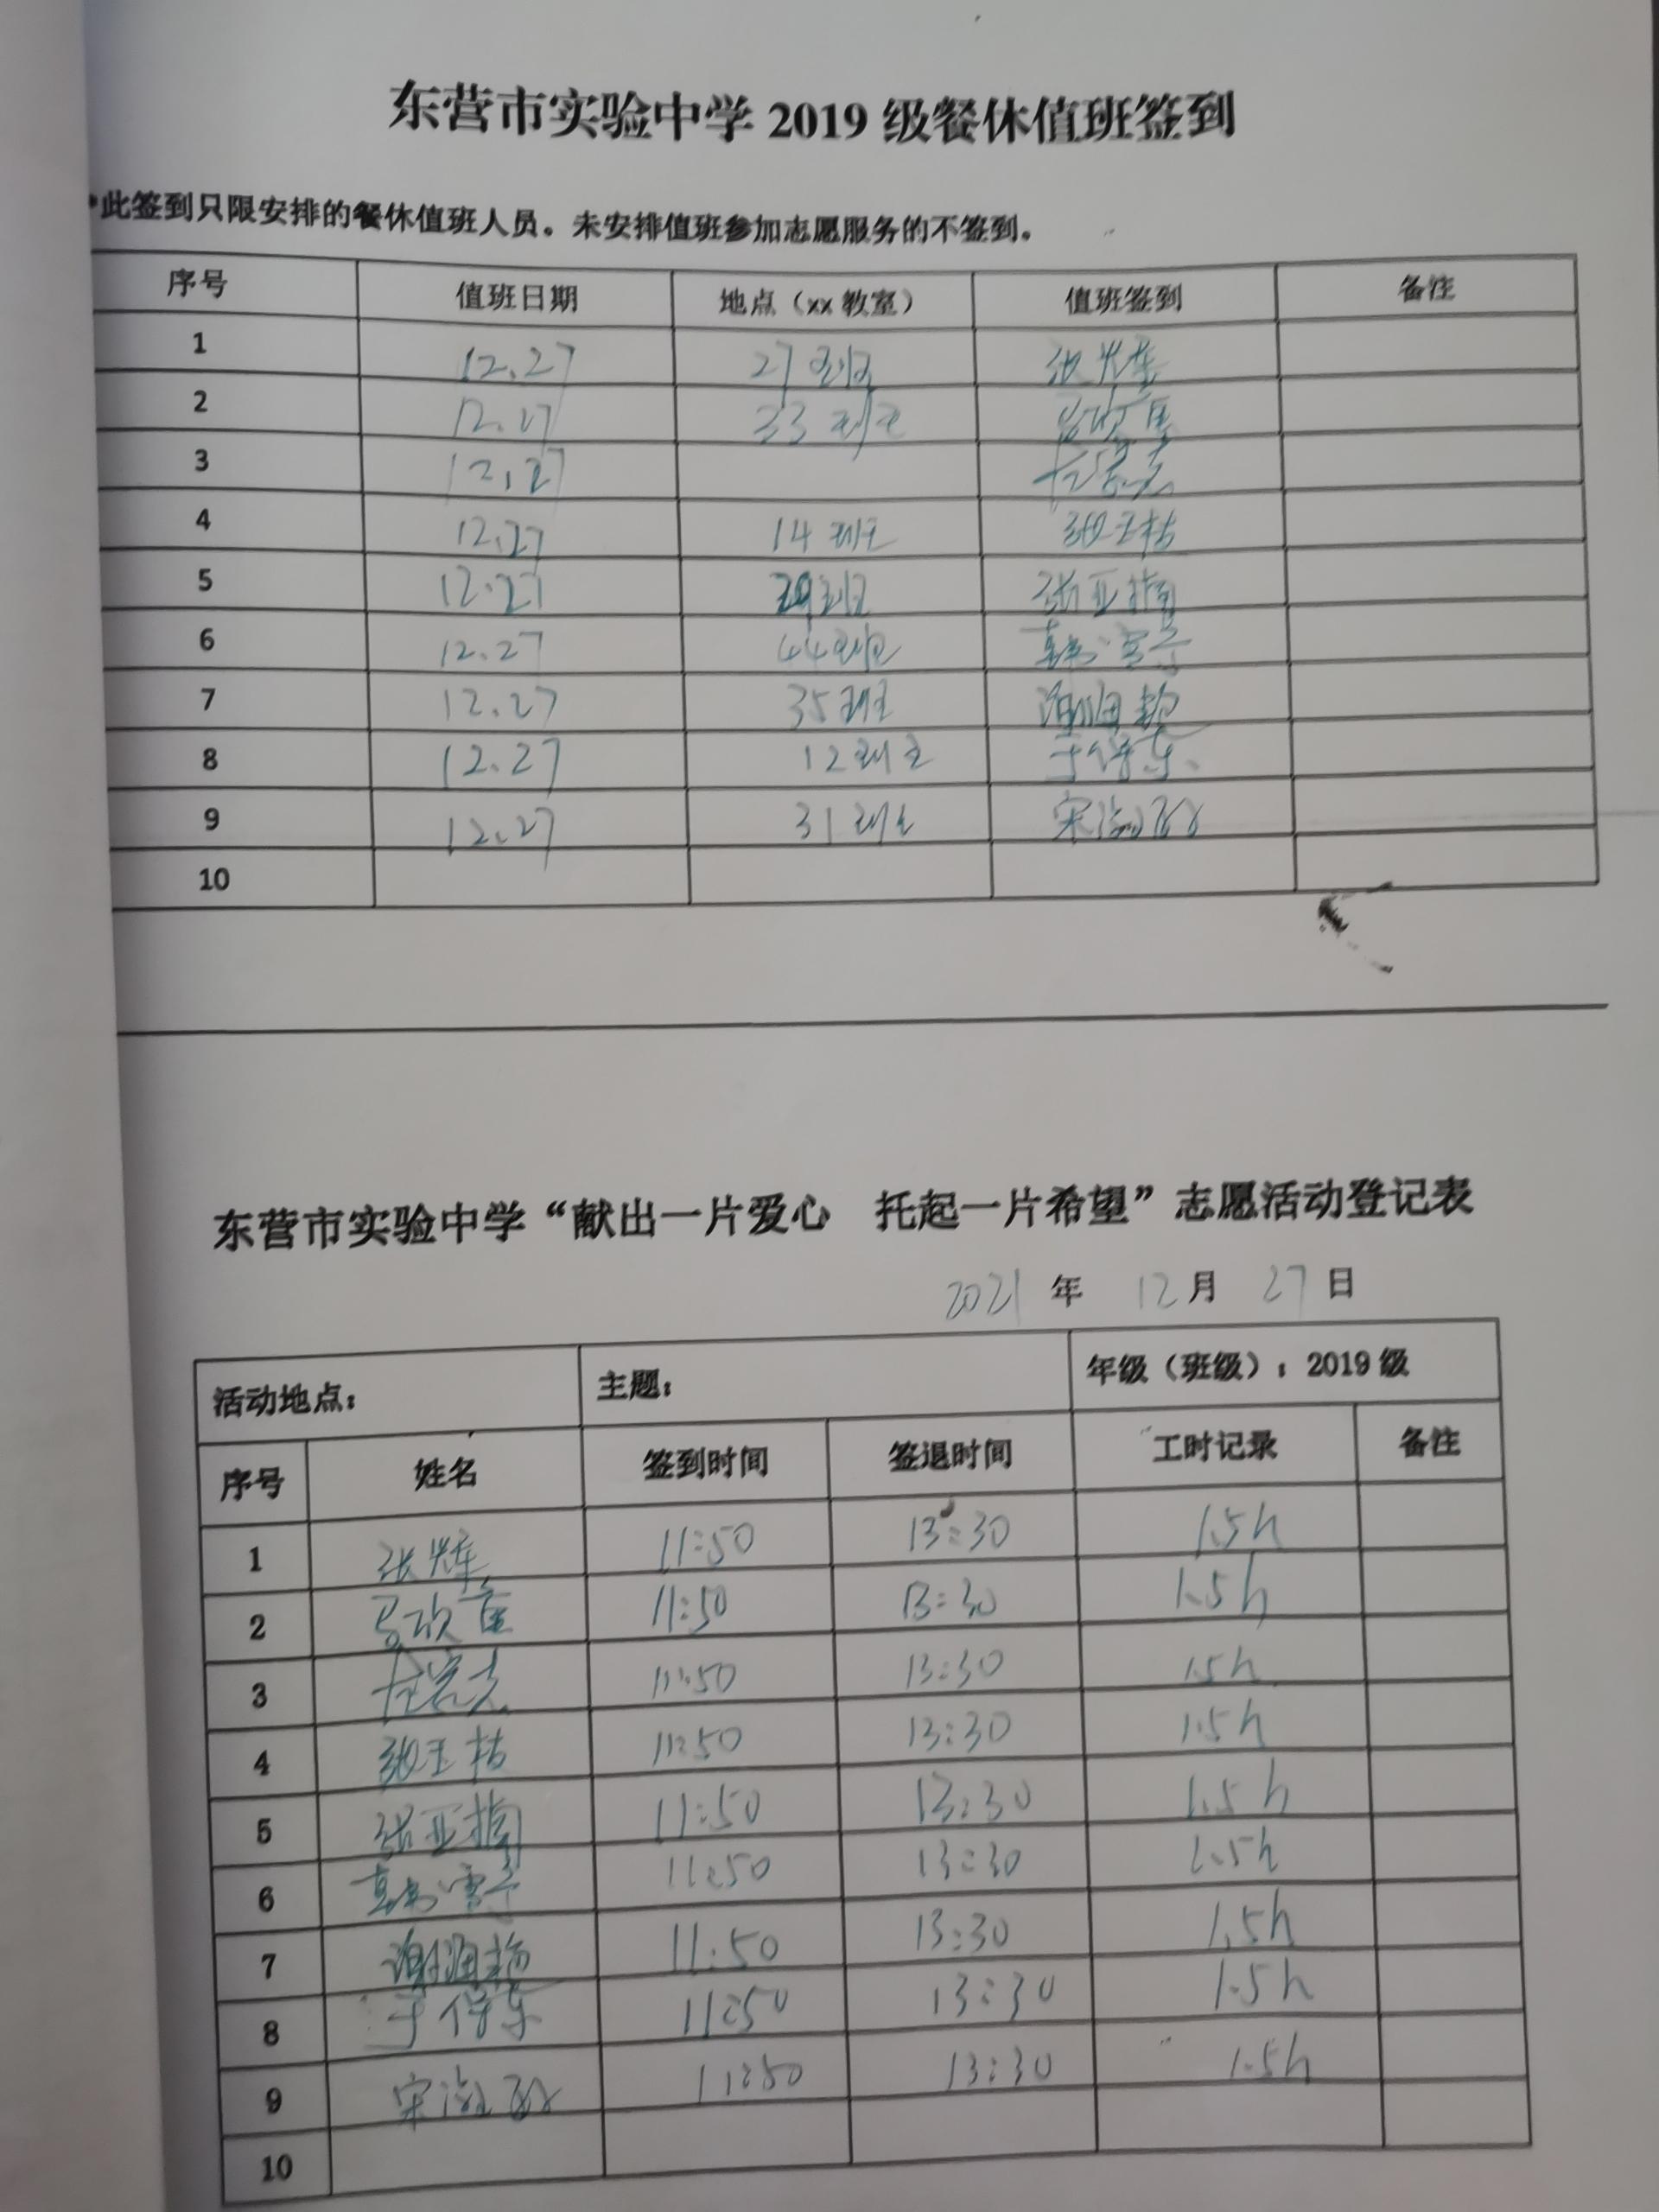 东营市实验中学 2019 级餐休值班签到
*此签到只限安排的餐休值班人员。未安排值班参加志愿服务的不签到。
序号 值班日期 地点（xx 教室） 值班签到 备注
1 12.27 27班
2 12.27 33班
3 12.27
4 12.27 14班
5 12.27 班 张亚楠
6 12.27 44班
7 12.27 35班
8 12.27 12班
9 12.27 31班
10
东营市实验中学“献出一片爱心 托起一片希望”志愿活动登记表
2021 年 12 月 27 日
活动地点： 主题： 年级（班级）：2019 级
序号 姓名 签到时间 签退时间 工时记录 备注
1 11:50 13:30 1.5h
2 11:50 13:30 1.5h
3 11:50 13:30 1.5h
4 11:50 13:30 1.5h
5 张亚楠 11:50 13:30 1.5h
6 11:50 13:30 1.5h
7 11:50 13:30 1.5h
8 11:50 13:30 1.5h
9 11:50 13:30 1.5h
10